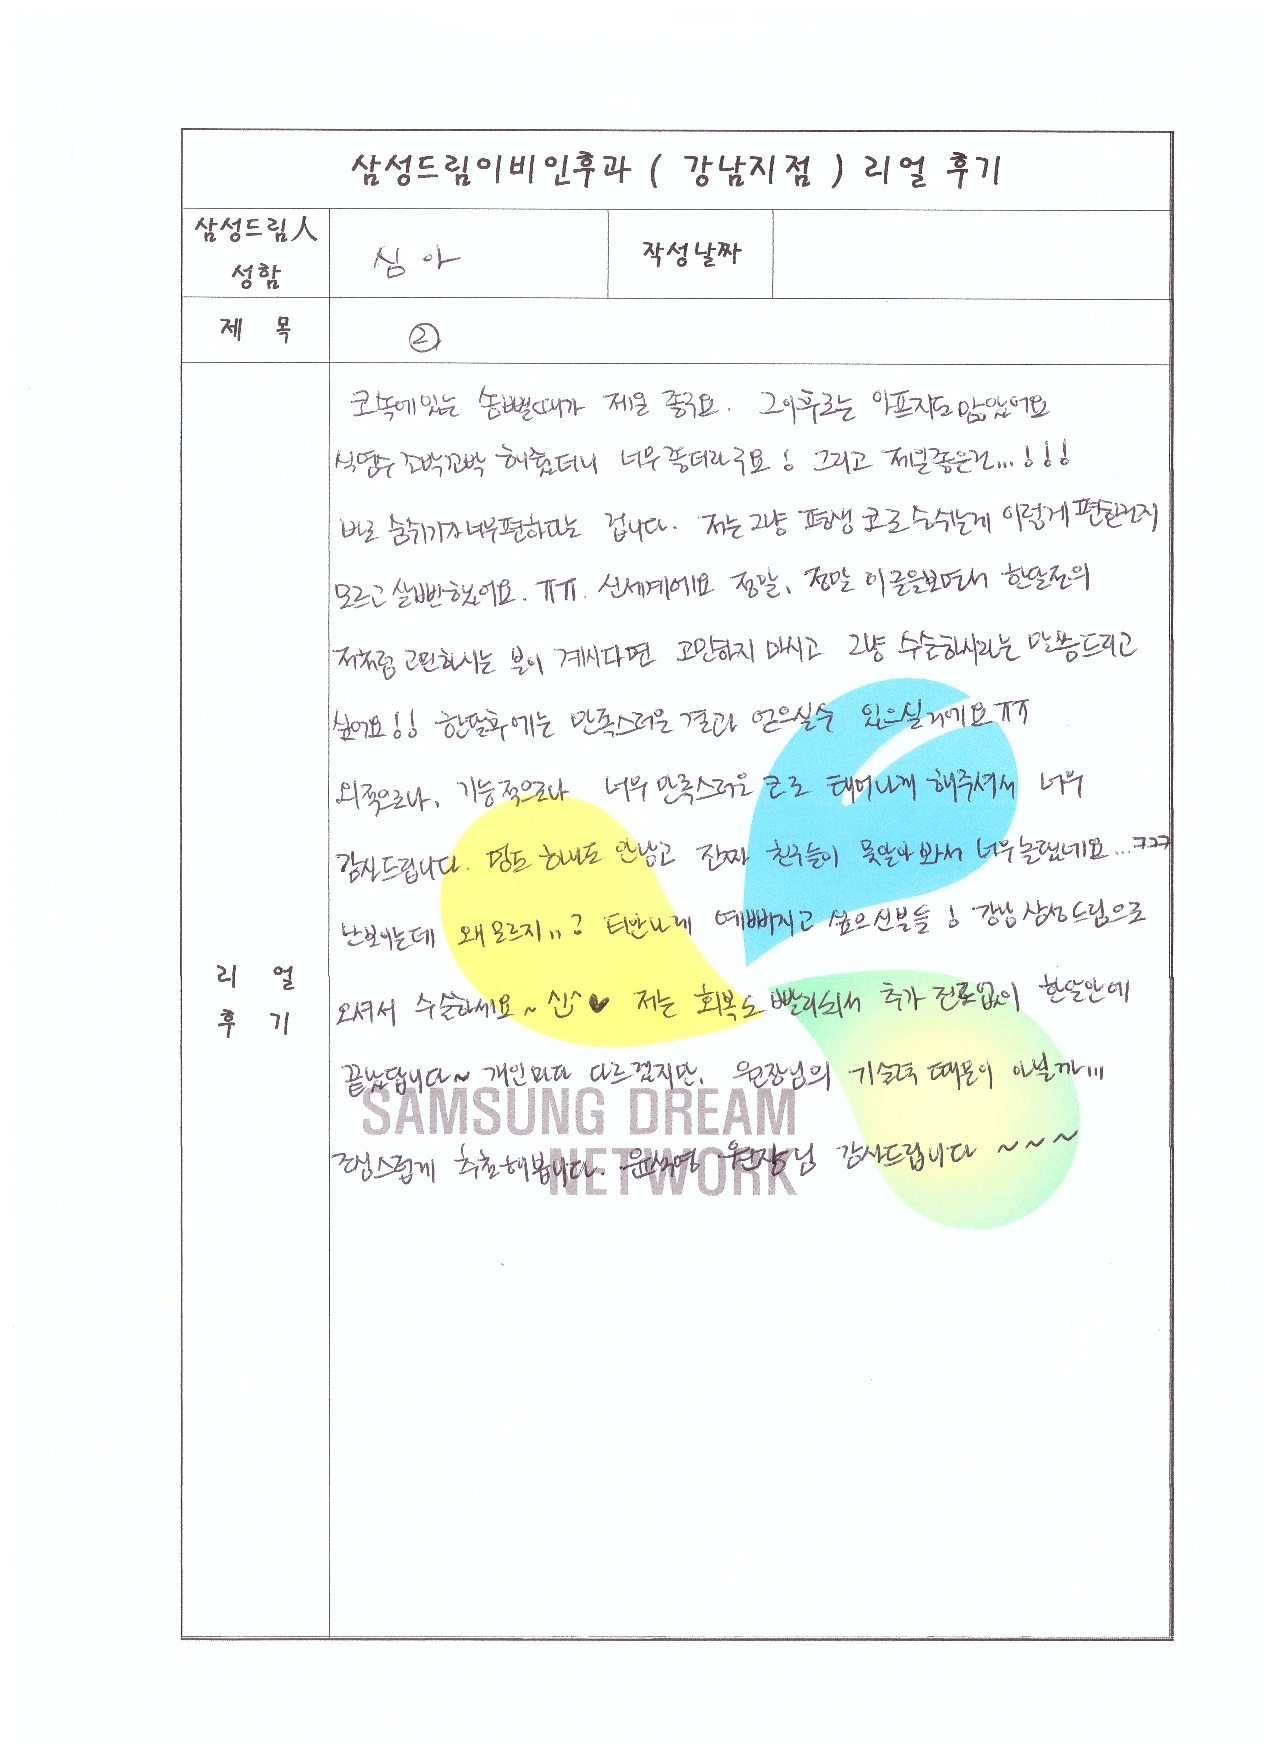 삼성드림이비인후과 ( 강남지점 ) 리얼 후기
삼성드림人
성함
심아
작성날짜
제 목
②
코속에있는 솜뺄때가 제일 좋구요. 그이후로는 아프지도않았어요
식염수 꼬박꼬박 해줬더니 너무좋더라구요! 그리고 제일좋은건...!!!
바로 숨쉬기가너무편하다는 겁니다. 저는그냥 평생 코로숨쉬는게 이렇게편한건지
모르고살뻔했어요. ㅠㅠ. 신세계에요 정말, 정말 이글을보면서 한달전의
저처럼 고민하시는 분이 계시다면 고민하지 마시고 그냥 수술하시라는 말씀드리고
싶어요!! 한달후에는 만족스러운결과 얻으실수 있으실거에요ㅠㅠ
외적으로나, 기능적으로나 너무만족스러운 코로 태어나게 해주셔서 너무
감사드립니다. 멍도 하나도 안남고 진짜 친구들이 못알아봐서 너무놀랬네요...ㅋㅋㅋ
난보이는데 왜모르지,,? 티안나게 예뻐지고 싶으신분들! 강남삼성드림으로
오셔서 수술하세요~ ♥ 저는 회복도빨리되서 추가 진료없이 한달안에
끝났답니다~ 개인마다 다르겠지만, 원장님의 기술력때문이 아닐까...
조심스럽게 추측해봅니다. 원장님 감사드립니다 ~~~
리 얼
후 기
SAMSUNG DREAM
NETWORK